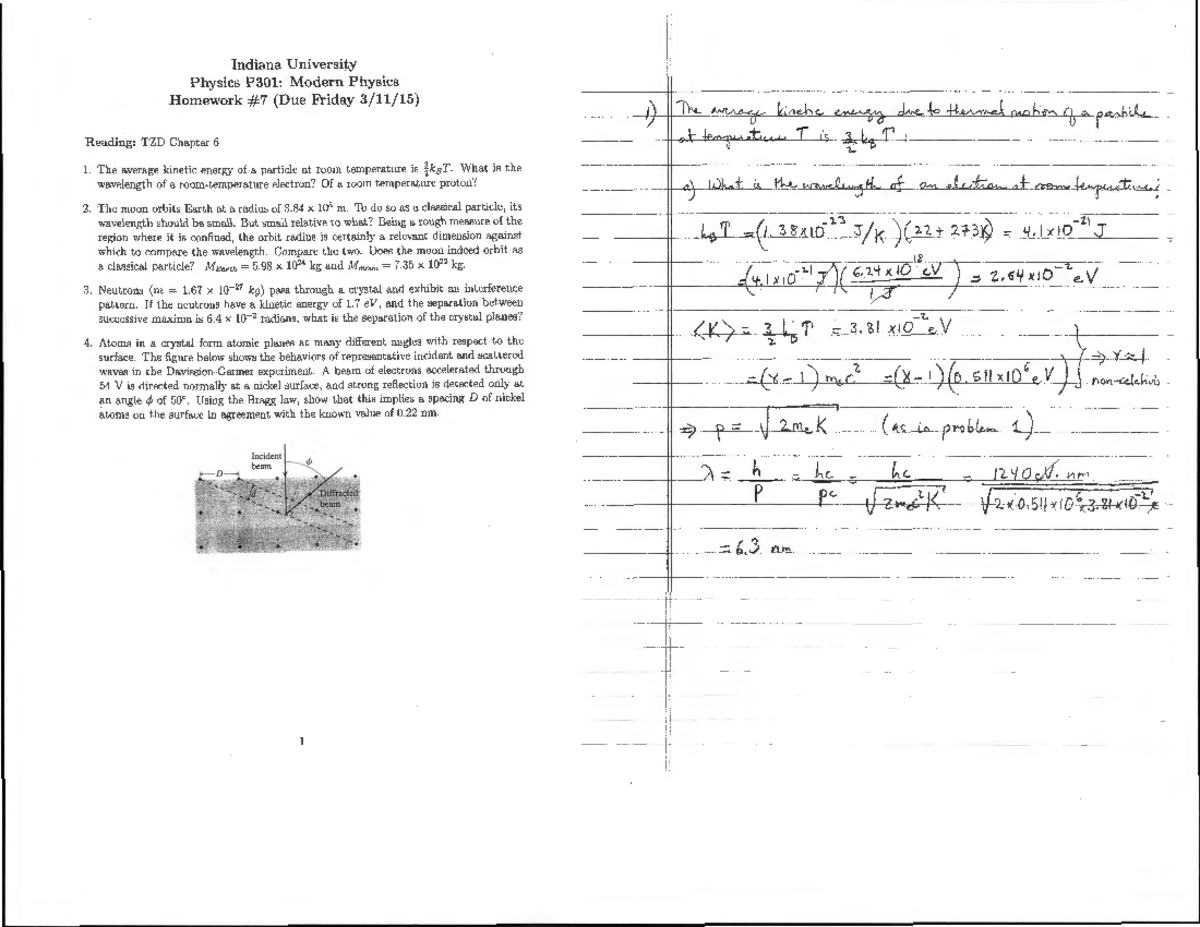 Indiana University
Physics P301: Modern Physics
Homework #7 (Due Friday 3/11/15)
Reading: TZD Chapter 6
1. The average kinetic energy of a particle at room temperature is k_BT. What is the
wavelength of a room-temperature electron? Of a room temperature proton?
2. The moon orbits Earth at a radius of 3.84 x 10 m. To do so as a classical particle, its
wavelength should be small. But small relative to what? Being a rough measure of the
region where it is confined, the orbit radius is certainly a relevant dimension against
which to compare the wavelength. Compare the two. Does the moon indeed orbit as
a classical particle? M_Earth = 5.98 x 10^24 kg and M_moon = 7.35 x 10^22 kg.
3. Neutrons (m = 1.67 × 10^-27 kg) pass through a crystal and exhibit an interference
pattern. If the neutrons have a kinetic energy of 1.7 eV, and the separation between
successive maxima is 6.4 × 10^-2 radians, what is the separation of the crystal planes?
4. Atoms in a crystal form atomic planes at many different angles with respect to the
surface. The figure below shows the behaviors of representative incident and scattered
waves in the Davission-Germer experiment. A beam of electrons accelerated through
54 V is directed normally at a nickel surface, and strong reflection is detected only at
an angle ϕ of 50°. Using the Bragg law, show that this implies a spacing D of nickel
atoms on the surface in agreement with the known value of 0.22 nm.
Incident
beam
ϕ
D
d
Diffracted
beam
1
1) The average kinetic energy due to thermal motion of a particle
at temperature T is 3/2 k_B T.
a) What is the wavelength of an electron at room temperature?
k_B T = (1.38x10^-23 J/K)(22 + 273K) = 4.1x10^-21 J
= (4.1x10^-21 J)(6.24 x 10^18 eV / 1 J) = 2.54 x10^-2 eV
⟨K⟩ = 3/2 k_B T = 3.81 x10^-2 eV
= (γ - 1) m_e c^2 = (γ - 1)(0.511x10^6 eV) } ⇒ γ ≈ 1
non-relativis
⇒ p = √(2m_e K) (as in problem 1)
λ = h/p = hc/pc = hc/√(2m_e c^2 K) = 1240 eV·nm/√(2x0.511x10^6 x3.81x10^-2 e
= 6.3 nm